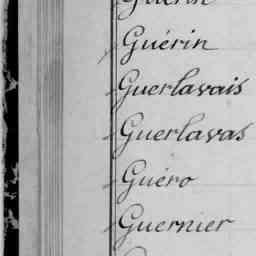 Guérin
Guérin
Guerlavais
Guerlavas
Guéro
Guernier